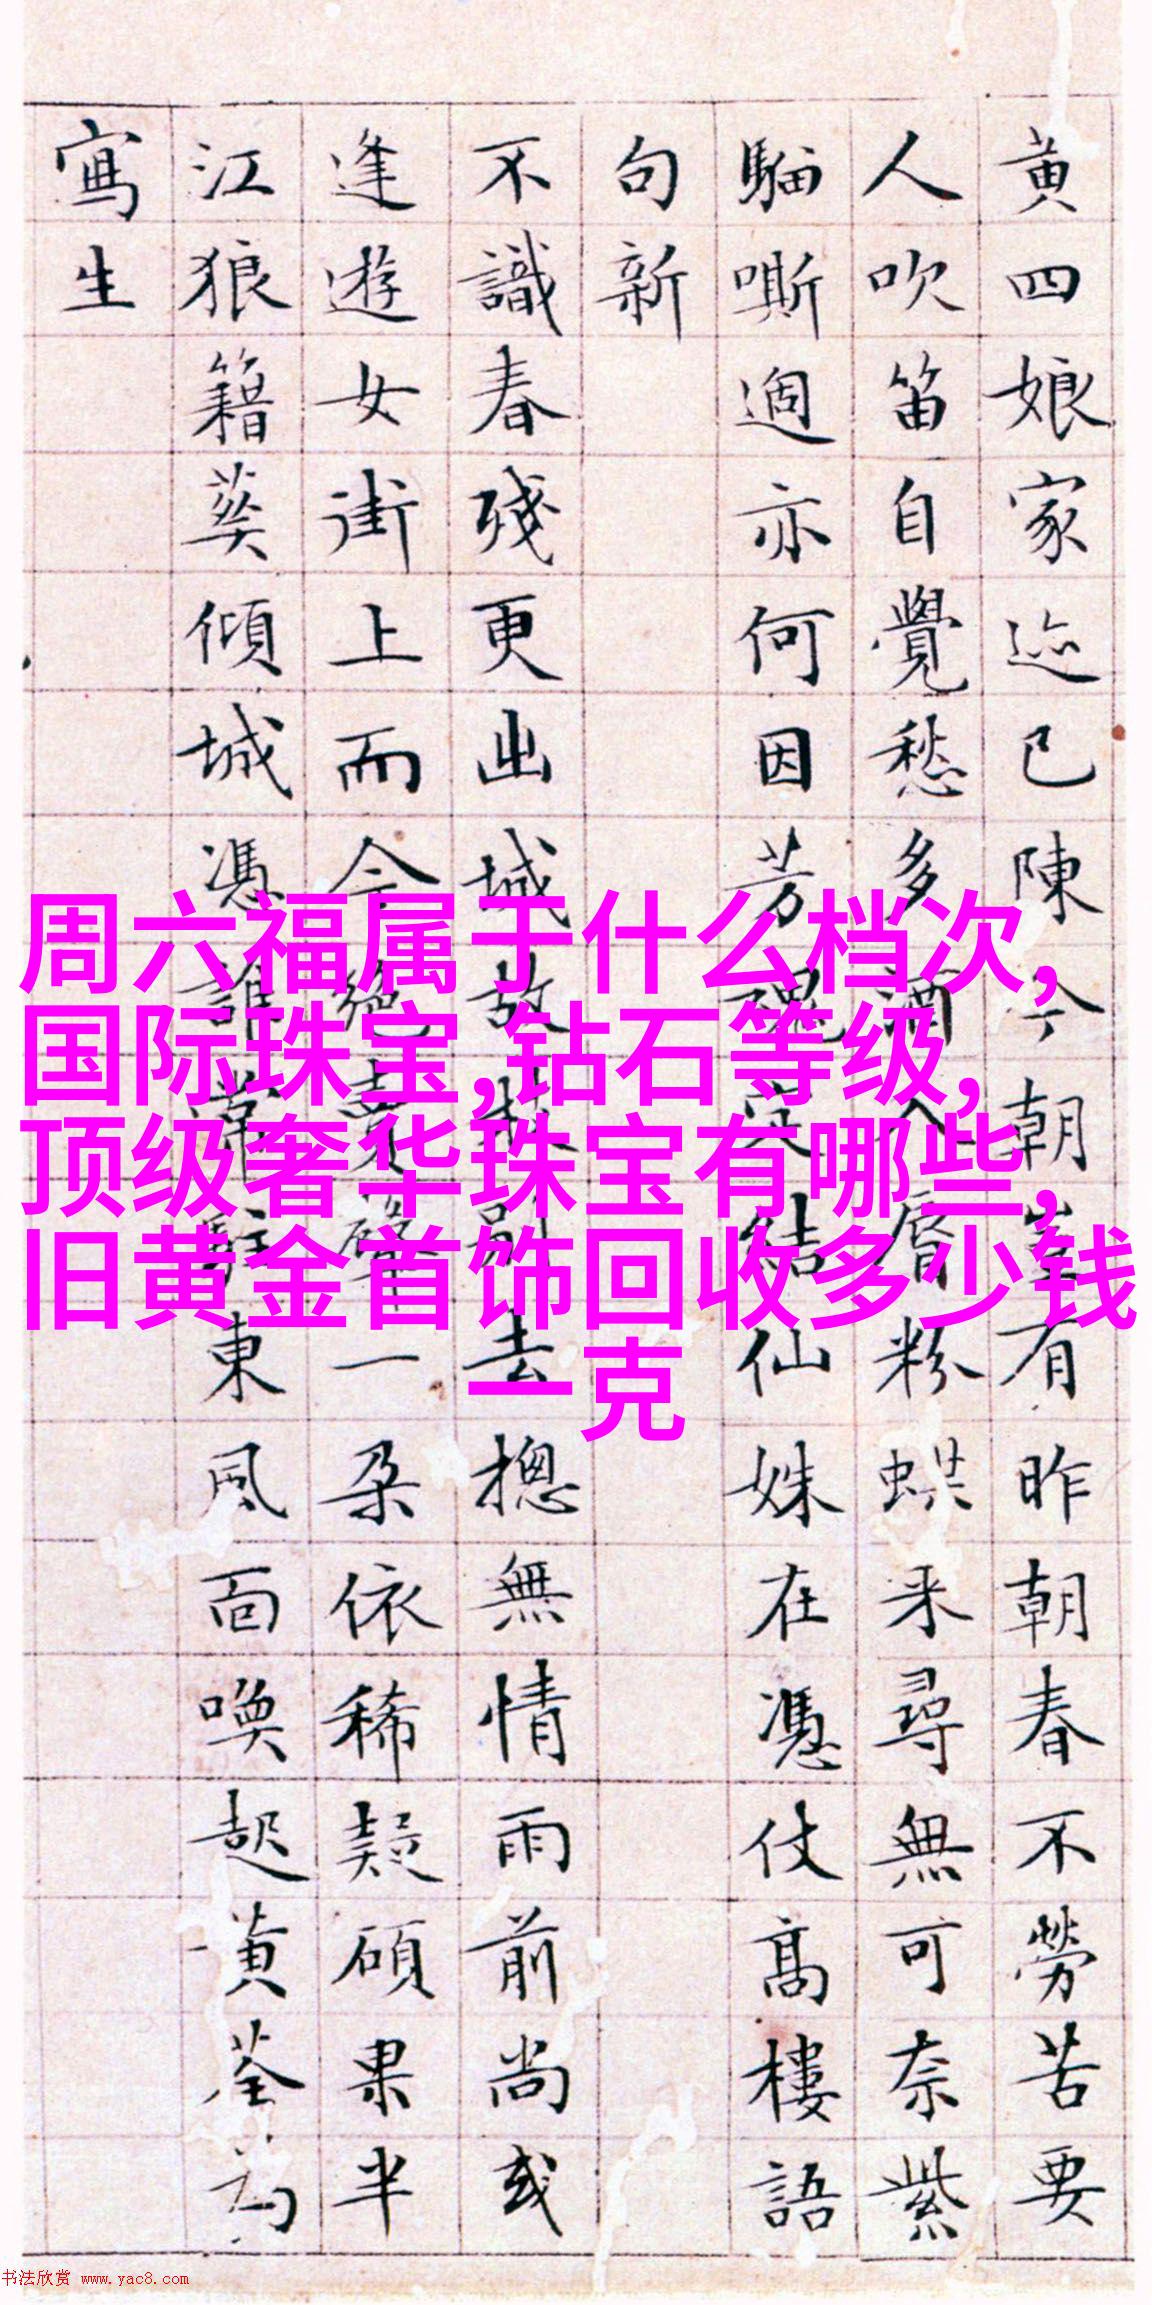 黄四娘家迹已陳今朝豈有昨朝春不勞苦要
人吹笛自覺愁多酒入唇粉蜨来尋無可奈紫
騮嘶過亦何因芳魂結仙姝在憑仗高樓語
句新
不識春殘更出城故枝別去摠無情雨前尚或
逢遊女街上而今絕賣聲一朵依稀疑碩果半
江狼籍葵傾城憑誰常駐東風面喚起黄荃為
寫生
周六福属于什么档次,
国际珠宝,钻石等级,
顶级奢华珠宝有哪些,
旧黄金首饰回收多少钱
一克
书法欣赏 www.yac8.com